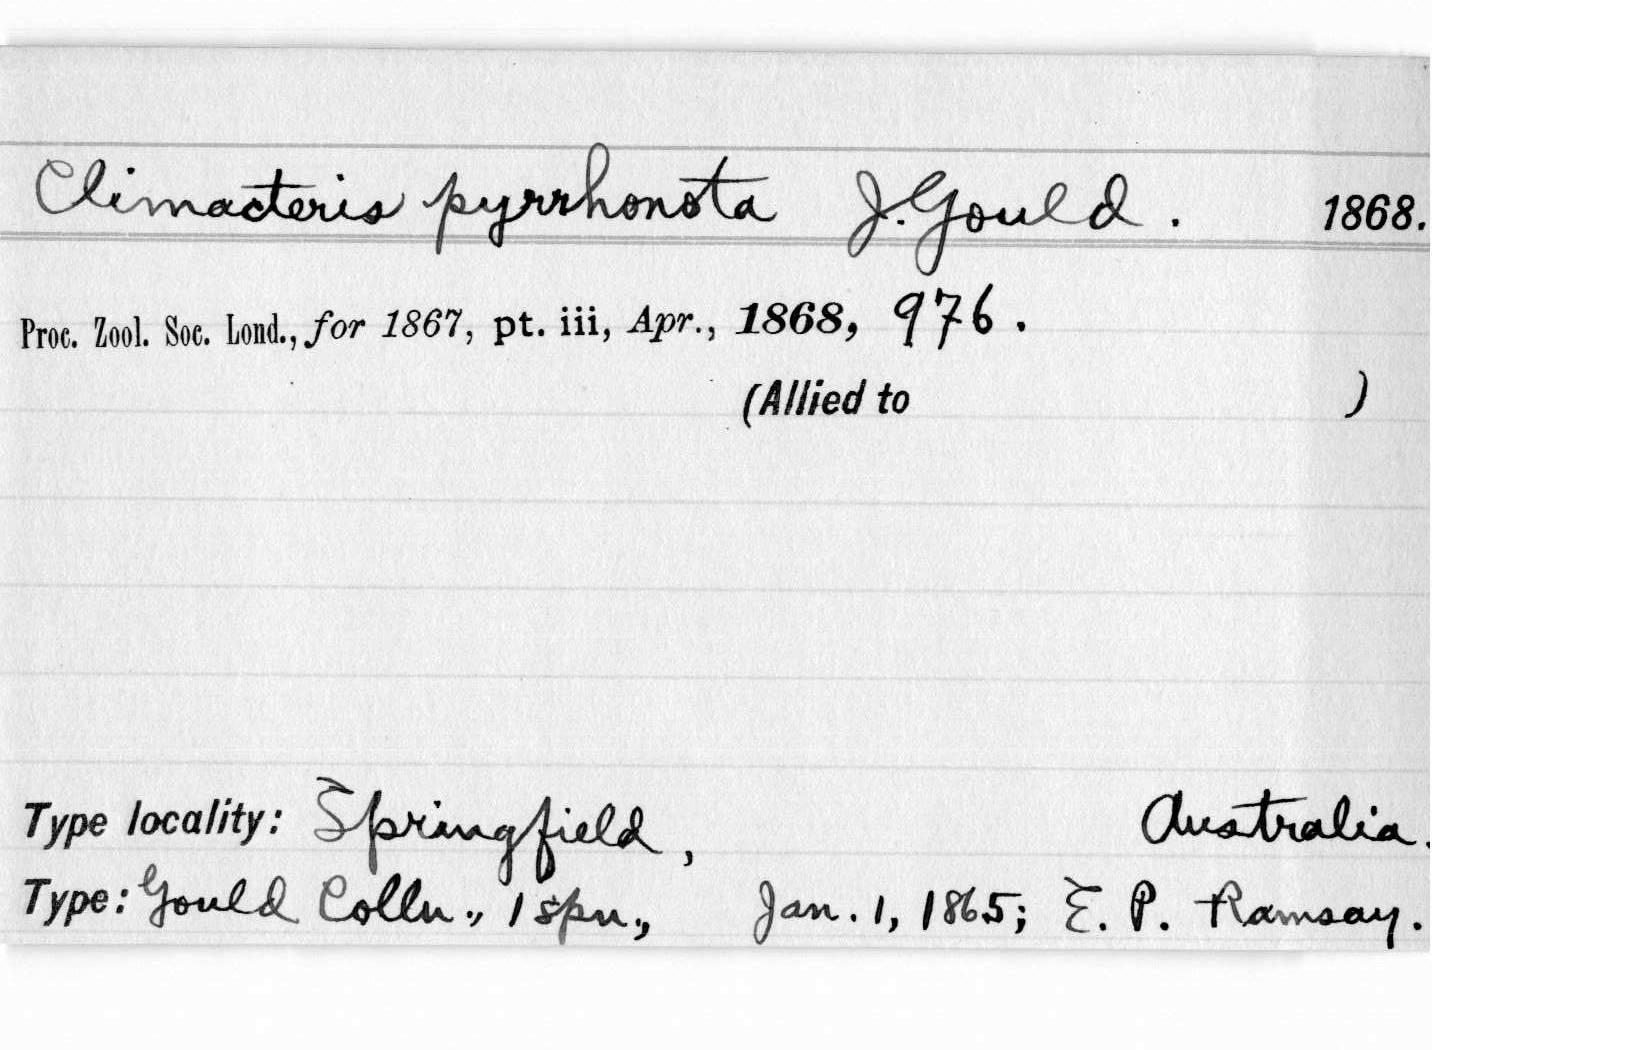 Climacteris pyrrhonota J. Gould. 1868.
Proc. Zool. Soc. Lond., for 1867, pt. iii, Apr., 1868, 976.
(Allied to )
Type locality: Springfield, Australia.
Type: Gould Colln., 1 spn., Jan. 1, 1865; E. P. Ramsay.